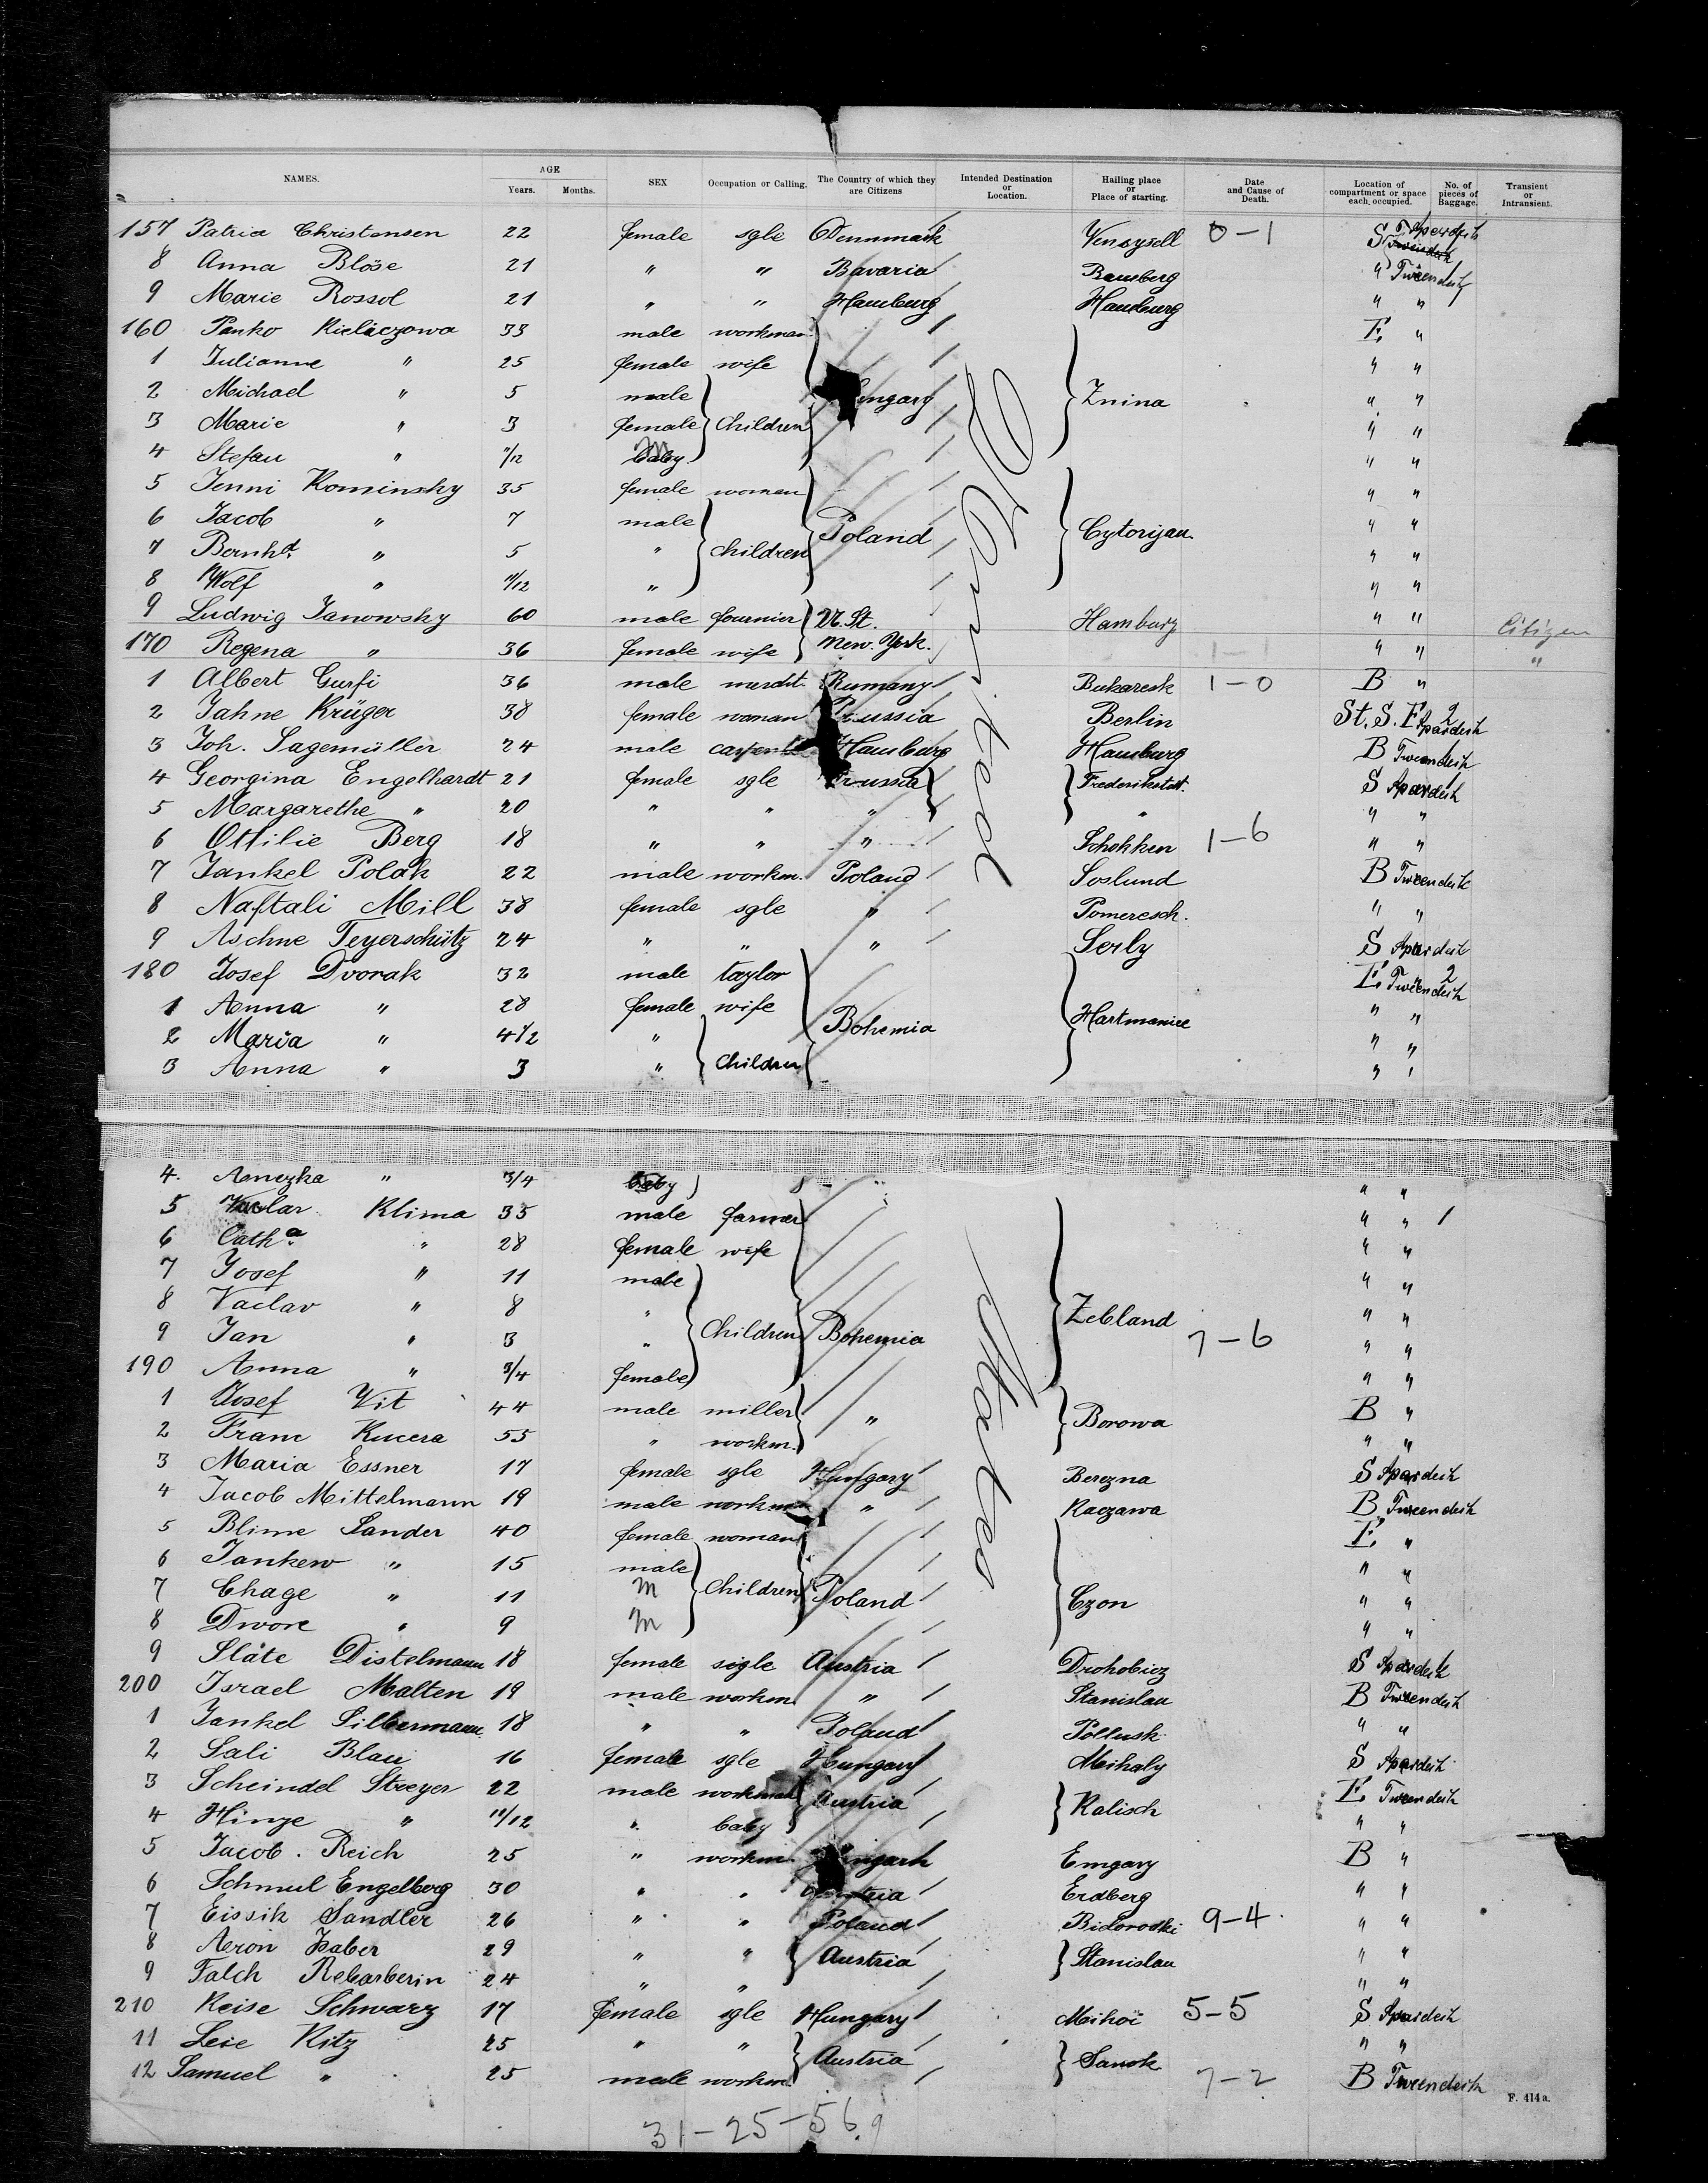 NAMES. AGE Years. Months. SEX Occupation or Calling. The Country of which they are Citizens Intended Destination or Location. Hailing place or Place of starting. Date and Cause of Death. Location of compartment or space each occupied. No. of pieces of Baggage. Transient or Intransient.
157 Patria Christensen 22 female sgle Dennmark Vensysell 0-1 S Apardeck
8 Anna Blöse 21 " " Bavaria Bamberg " Tweendeck
9 Marie Rossol 21 " " Hamburg Hamburg " "
160 Panko Kielaczowa 33 male workman E. "
1 Julianne " 25 female wife " "
2 Michael " 5 male Hungary Znina " "
3 Marie " 3 female Children " "
4 Stefan " 11/12 baby M " "
5 Jenni Kominsky 35 female woman " "
6 Jacob " 7 male Poland Cytorijan " "
7 Bernhd. " 5 " Children " "
8 Wolf " 11/12 " " "
9 Ludwig Janowsky 60 male fournier U. St. Hamburg " " Citizen
170 Regena " 36 female wife New. York. 1-1 " " "
1 Albert Gurfi 36 male mercht. Rumany Bukaresk 1-0 B "
2 Jahne Krüger 38 female woman Prussia Berlin St. S. F. 2 Apardeck
3 Joh. Sagemüller 24 male carpenter Hamburg Hamburg B Tweendeck
4 Georgina Engelhardt 21 female sgle Prussia Frederikstatt. S Apardeck 1
5 Margarethe " 20 " " " " " "
6 Ottilie Berg 18 " " " Schokken 1-6 " "
7 Jankel Polak 22 male workm. Poland Soslund B Tweendeck
8 Naftali Mill 38 female sgle " Pomeresch. " "
9 Aschne Feyerschütz 24 " " " Serly S Apardeck
180 Josef Dvorak 32 male taylor E. Tweendeck 2
1 Anna " 28 female wife Bohemia Hartmanice " "
2 Maria " 4 1/2 " " "
3 Anna " 3 " Children " "
4. Anezka " 3/4 baby " " "
5 Vaclav Klima 35 male farmer " " 1
6 Catha. " 28 female wife " "
7 Josef " 11 male " "
8 Vaclav " 8 " Zebland " "
9 Jan " 3 " Children Bohemia 7-6 " "
190 Anna " 3/4 female " "
1 Josef Vit 44 male miller " Borowa B "
2 Franz Kucera 55 " workm. " "
3 Maria Essner 17 female sgle Hungary Berezna S Apardeck
4 Jacob Mittelmann 19 male workman " Raczawa B Tweendeck
5 Blime Sander 40 female woman E. "
6 Jankew " 15 male " "
7 Chage " 11 M Children Poland Czon " "
8 Dwore " 9 M " "
9 Släte Distelmann 18 female sigle Austria Drohobicz S Apardeck 1
200 Israel Malten 19 male workm. " Stanislau B Tweendeck
1 Jankel Silbermann 18 " " Poland Pollusk " "
2 Sali Blau 16 female sgle Hungary Meihaly S Apardeck
3 Scheindel Streyer 22 male workman Austria Kalisch E. Tweendeck
4 Hinze " 11/12 " baby " "
5 Jacob. Reich 25 " workm. Hungarn Emgary B "
6 Schmul Engelberg 30 " " Austria Erdberg " "
7 Eissik Sandler 26 " " Poland Bidorodki 9-4 " "
8 Aron Haber 29 " " Austria Stanislau " "
9 Falch Rebarberin 24 " " " "
210 Reise Schwarz 17 female sgle Hungary Meihoi 5-5 S Apardeck
11 Leie Ritz 25 " " Austria Sanok " "
12 Samuel " 25 male workm. 7-2 B Tweendeck
United States
F. 414 a.
31-25-56.9